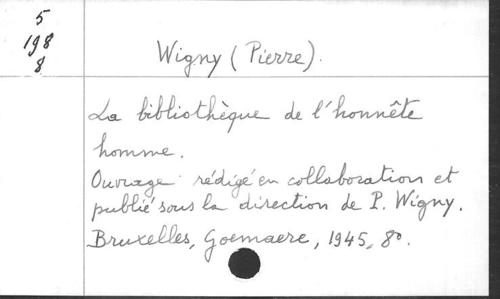 5
198
8
Wigny (Pierre).
La bibliothèque de l'honnête
homme.
Ouvrage rédigé en collaboration et
publié sous la direction de P. Wigny.
Bruxelles, Goemaere, 1945, 8o.